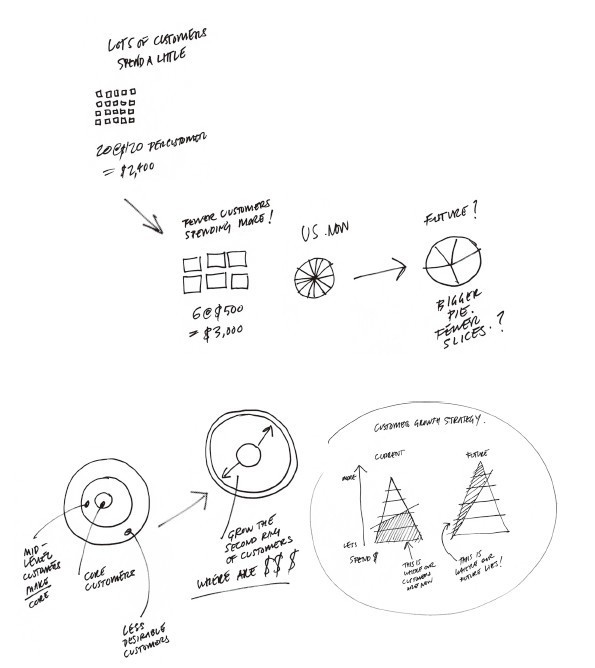 LOTS OF CUSTOMERS
SPEND A LITTLE
20@$120 PER CUSTOMER
= $2,400
FEWER CUSTOMERS
SPENDING MORE!
6@$500
= $3,000
US. NOW
FUTURE?
BIGGER
PIE.
FEWER
SLICES.?
MID-
LEVEL
CUSTOMERS
MAKE
CORE
CORE
CUSTOMERS
LESS
DESIRABLE
CUSTOMERS
GROW THE
SECOND RING
OF CUSTOMERS
WHERE ARE $$$
CUSTOMER GROWTH STRATEGY.
CURRENT
FUTURE
MORE
LESS
SPEND $
THIS IS
WHERE OUR
CUSTOMERS
ARE NOW
THIS IS
WHERE OUR
FUTURE LIES!